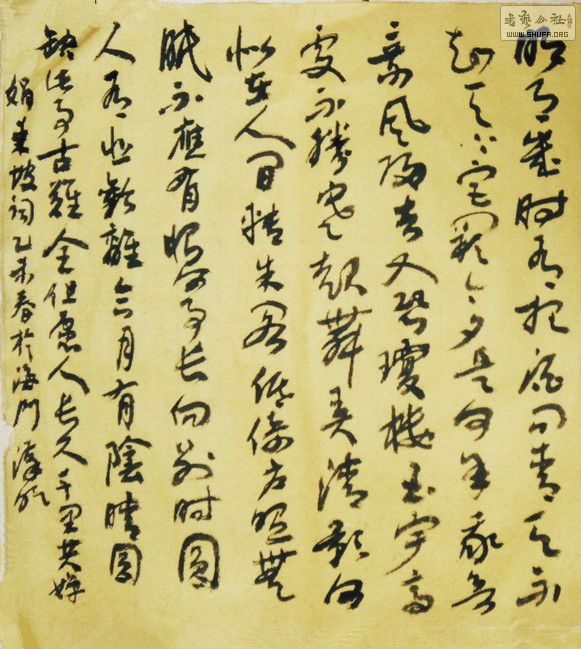 書藝公社
WWW.SHUFA.ORG
明月幾时有把酒问青天不
知天上宫阙今夕是何年我欲
乘风归去又恐瓊楼玉宇高
处不勝寒起舞弄清影何
似在人间转朱阁低绮户照無
眠不應有恨何事长向别时圆
人有悲歡離合月有陰晴圆
缺此事古難全但愿人长久千里共婵
娟東坡词乙未春於海門